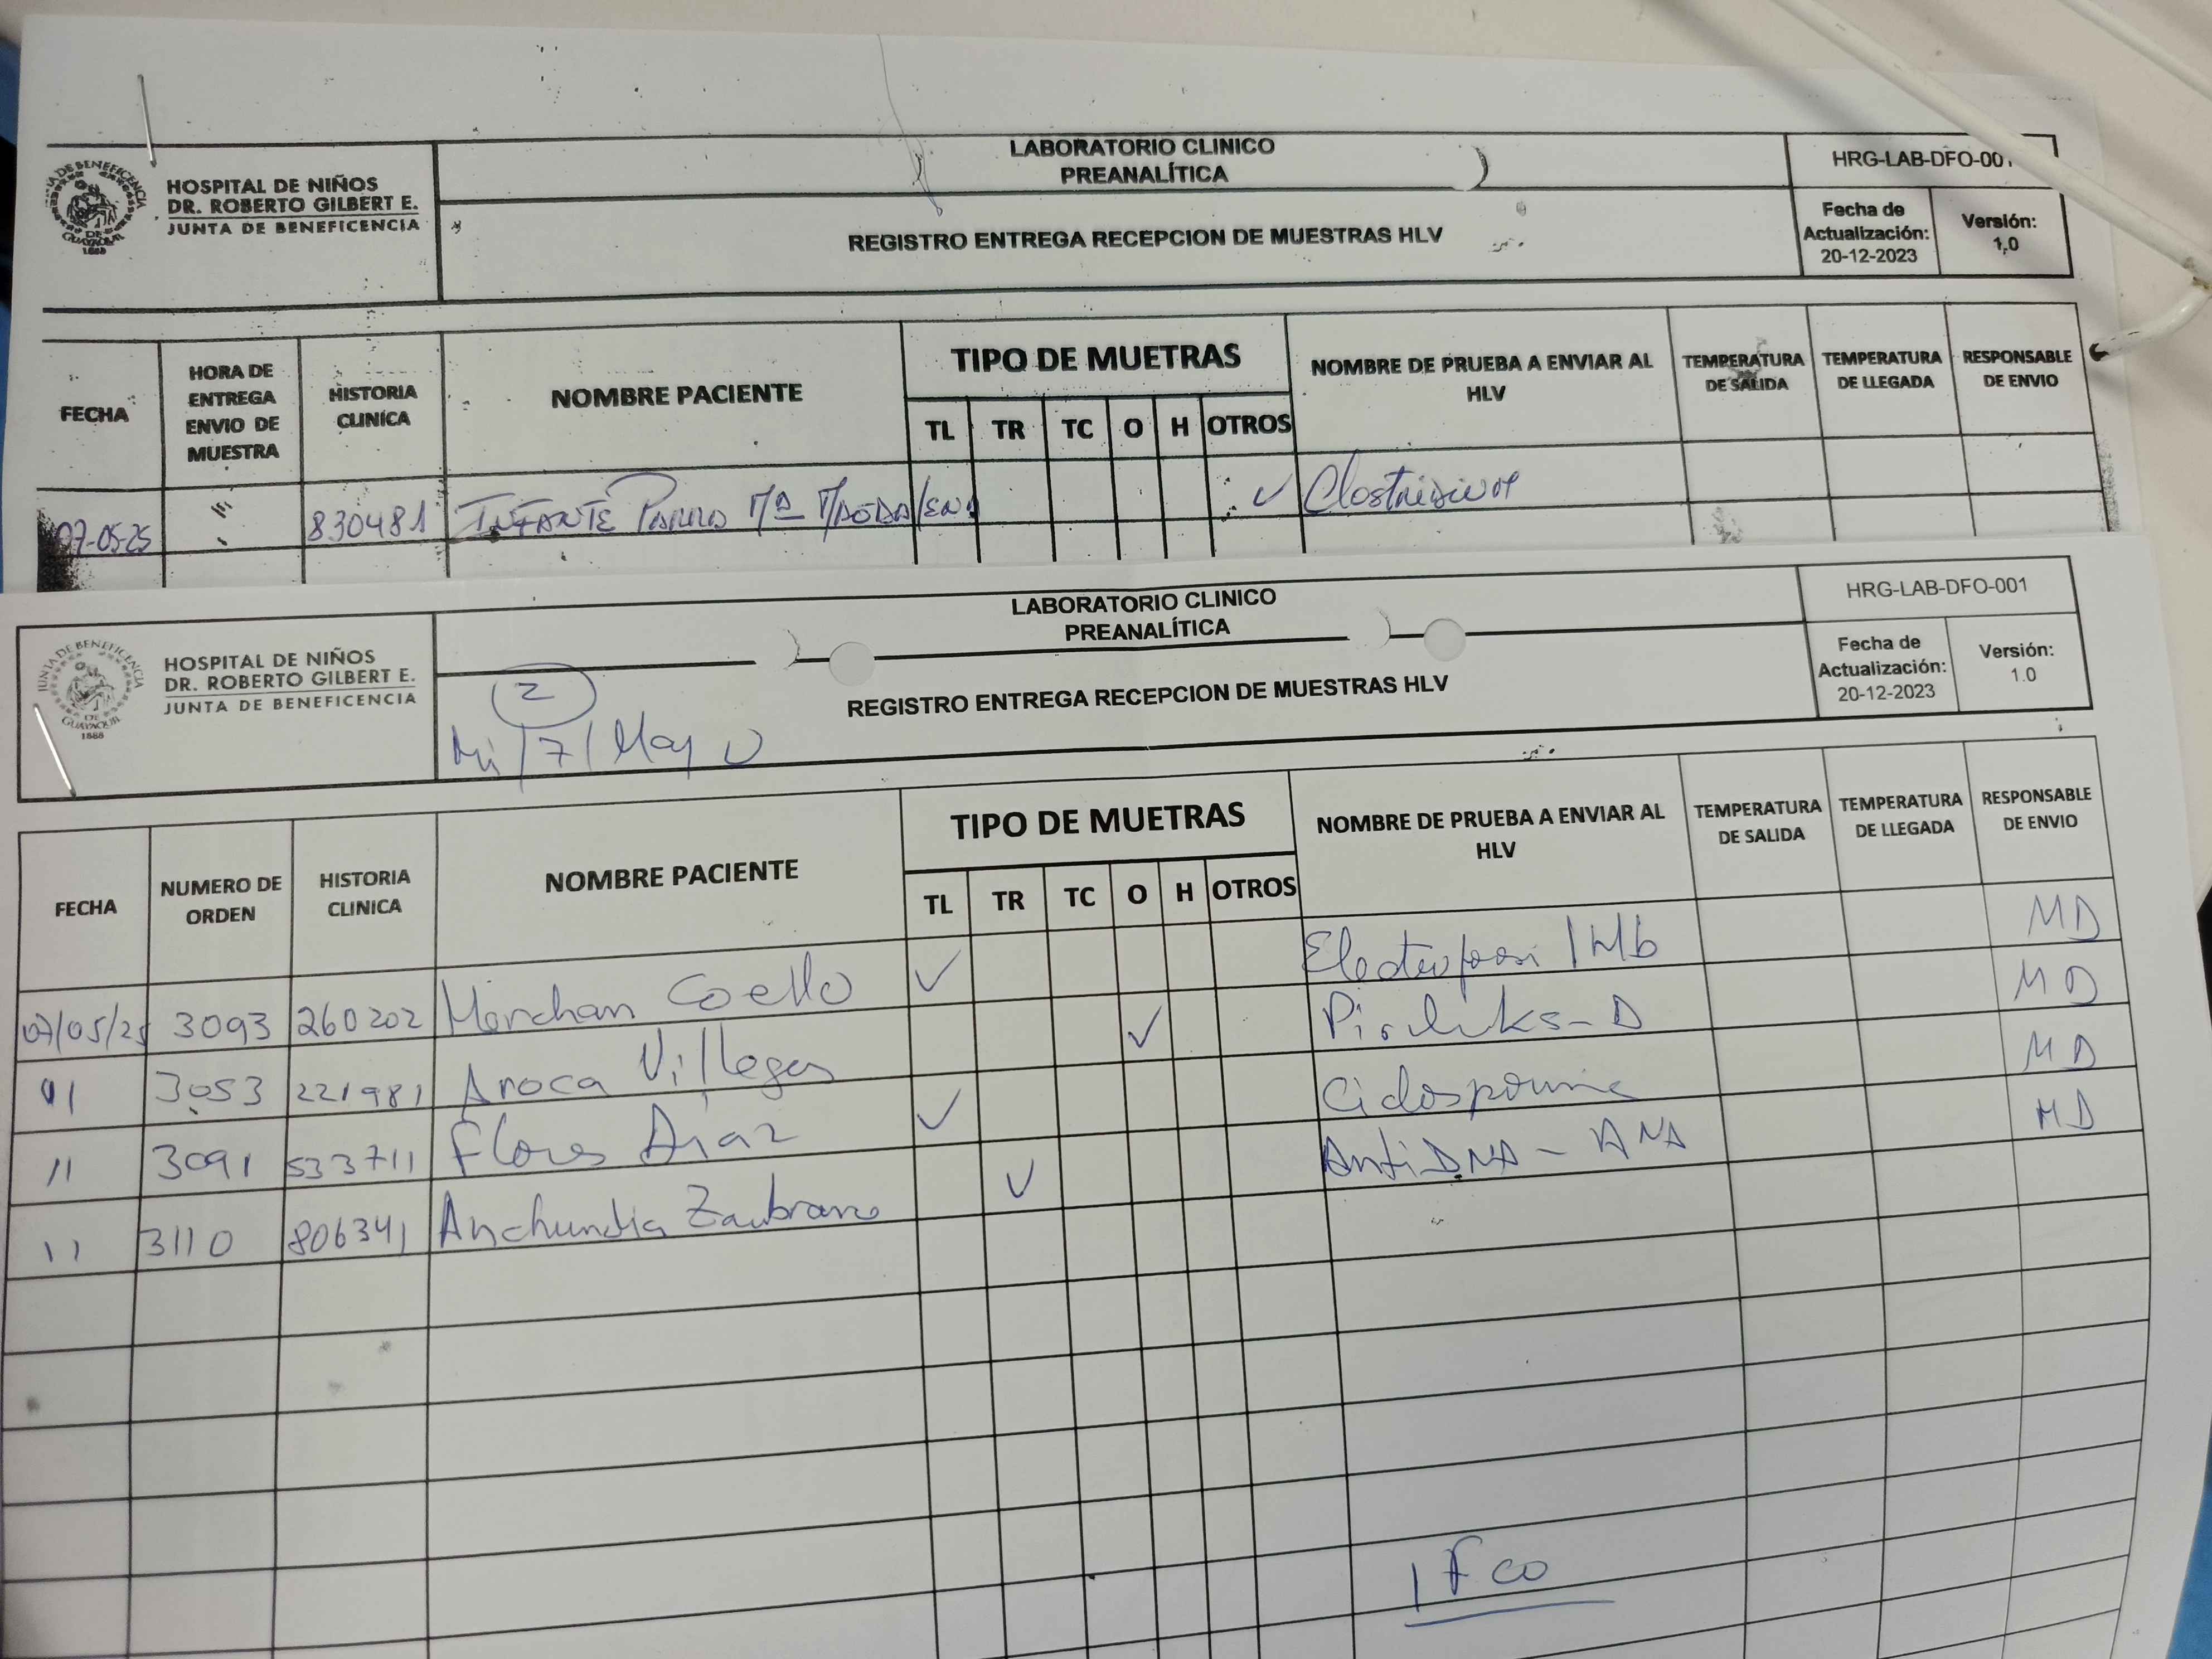 LABORATORIO CLINICO
PREANALÍTICA
HRG-LAB-DFO-001
JUNTA DE BENEFICENCIA DE GUAYAQUIL 1888
HOSPITAL DE NIÑOS
DR. ROBERTO GILBERT E.
JUNTA DE BENEFICENCIA
REGISTRO ENTREGA RECEPCION DE MUESTRAS HLV
Fecha de Actualización: 20-12-2023
Versión: 1.0
FECHA HORA DE ENTREGA ENVIO DE MUESTRA HISTORIA CLINICA NOMBRE PACIENTE TIPO DE MUETRAS NOMBRE DE PRUEBA A ENVIAR AL HLV TEMPERATURA DE SALIDA TEMPERATURA DE LLEGADA RESPONSABLE DE ENVIO
TL TR TC O H OTROS
07-05-25 830481 INFANTE Mª ✓
LABORATORIO CLINICO
PREANALÍTICA
HRG-LAB-DFO-001
JUNTA DE BENEFICENCIA DE GUAYAQUIL 1888
HOSPITAL DE NIÑOS
DR. ROBERTO GILBERT E.
JUNTA DE BENEFICENCIA
2
Mi/7/Mayo
REGISTRO ENTREGA RECEPCION DE MUESTRAS HLV
Fecha de Actualización: 20-12-2023
Versión: 1.0
FECHA NUMERO DE ORDEN HISTORIA CLINICA NOMBRE PACIENTE TIPO DE MUETRAS NOMBRE DE PRUEBA A ENVIAR AL HLV TEMPERATURA DE SALIDA TEMPERATURA DE LLEGADA RESPONSABLE DE ENVIO
TL TR TC O H OTROS
07/05/25 3093 260202 Merchan Coello ✓ MD
11 3053 221981 Aroca Villegas ✓ MD
11 3091 533711 Flores Diaz ✓ MD
11 3110 806341 Anchundia Zambrano ✓ AntiDNA - ANA MD
1 Fco